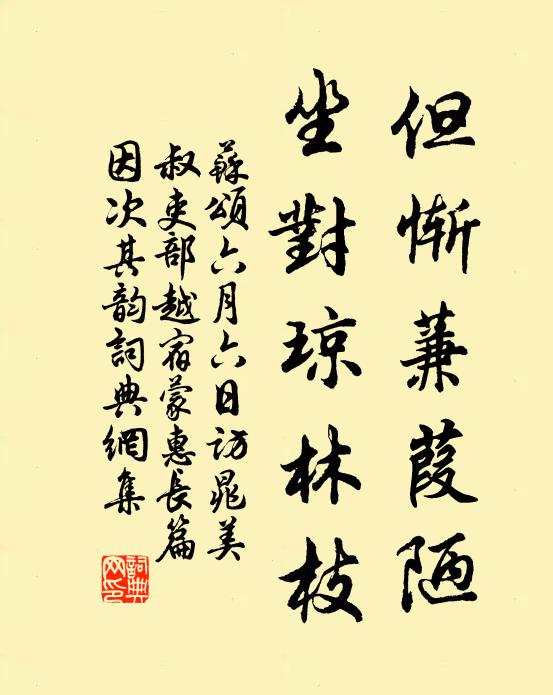 但慚蒹葭陋
坐對琼林枝
蘇頌六月六日访晁美
叔吏部越宿蒙惠長篇
因次其韵詞典網集
詞典
网印